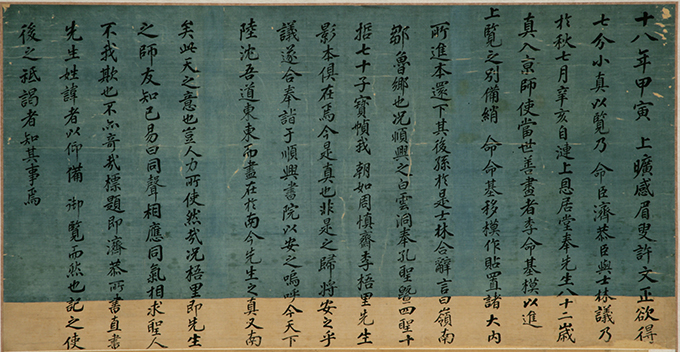 十八年甲寅 上曠感眉叟許文正欲得
七分小真以覽乃 命臣濟恭臣與士林議乃
於秋七月辛亥自漣上恩居堂奉先生八十二歲
真入京師使當世善畫者李命基模以進
上覽之別備綃 命命基移模作貼置諸大內
所進本還下其後孫於是士林合辭言曰嶺南
鄒魯鄉也况順興之白雲洞奉孔聖曁四聖十
哲七十子寳幀我 朝如周慎齋李梧里先生
影本俱在焉今是真也非是之歸將安之乎
議遂合奉詣于順興書院以安之嗚呼今天下
陸沈吾道東東而盡在於南今先生之真又南
矣此天之意也豈人力所使然哉况梧里即先生
之師友知己易曰同聲相應同氣相求聖人
不我欺也不亦奇哉標題即濟恭所書直書
先生姓諱者以仰備 御覽而然也記之使
後之祗謁者知其事焉